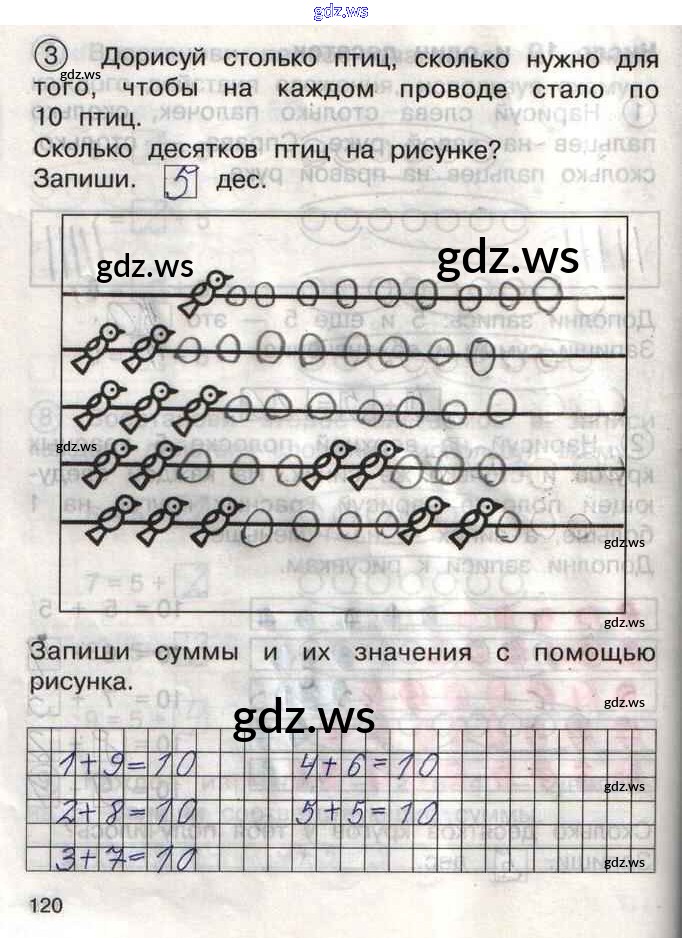 gdz.ws
3 Дорисуй столько птиц, сколько нужно для
gdz.ws
того, чтобы на каждом проводе стало по
10 птиц.
Сколько десятков птиц на рисунке?
Запиши. 5 дес.
gdz.ws
gdz.ws
gdz.ws
gdz.ws
gdz.ws
Запиши суммы и их значения с помощью
рисунка.
gdz.ws
gdz.ws
1+9=10 4+6=10
gdz.ws
2+8=10 5+5=10
3+7=10
gdz.ws
120